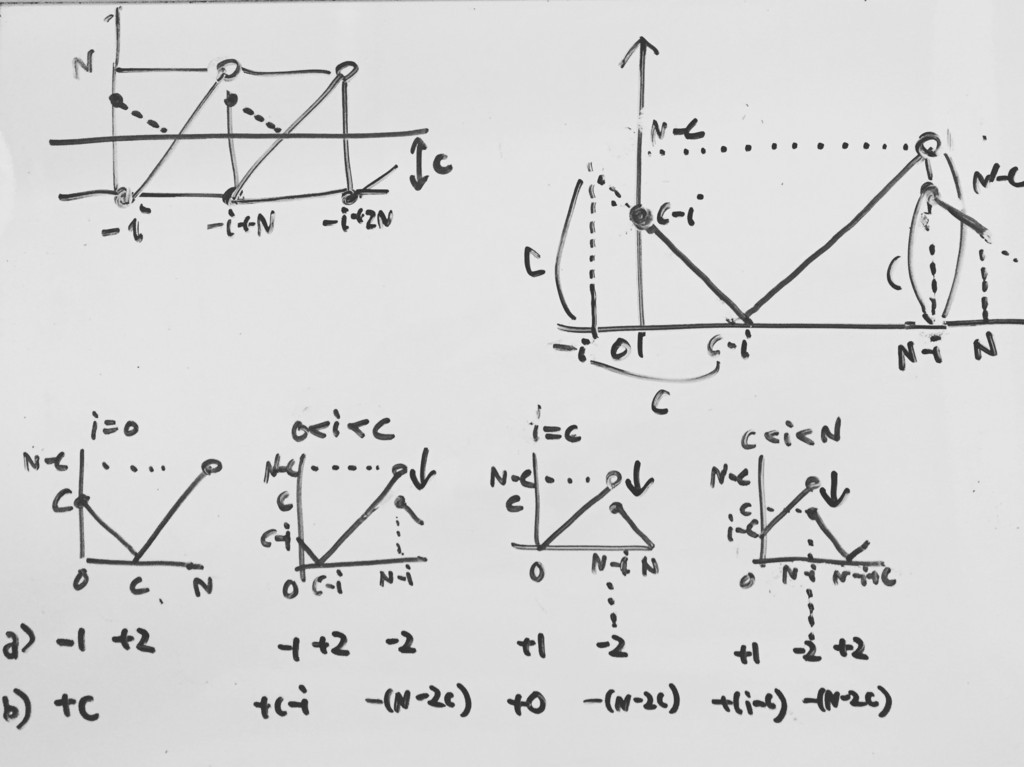 N
C
-i
-i+N
-i+2N
N-C
C-i
N-C
C
C
-i
0
C-i
N-i
N
C
i=0
0<i<C
i=c
C<i<N
N-C
C
0
C
N
N-C
C
C-i
0
C-i
N-i
N-C
C
0
N-i
N
N-C
C
i-C
0
N-i
N-i+C
a) -1 +2
-1 +2 -2
+1 -2
+1 -2 +2
b) +C
+C-i -(N-2C)
+0 -(N-2C)
+(i-C) -(N-2C)